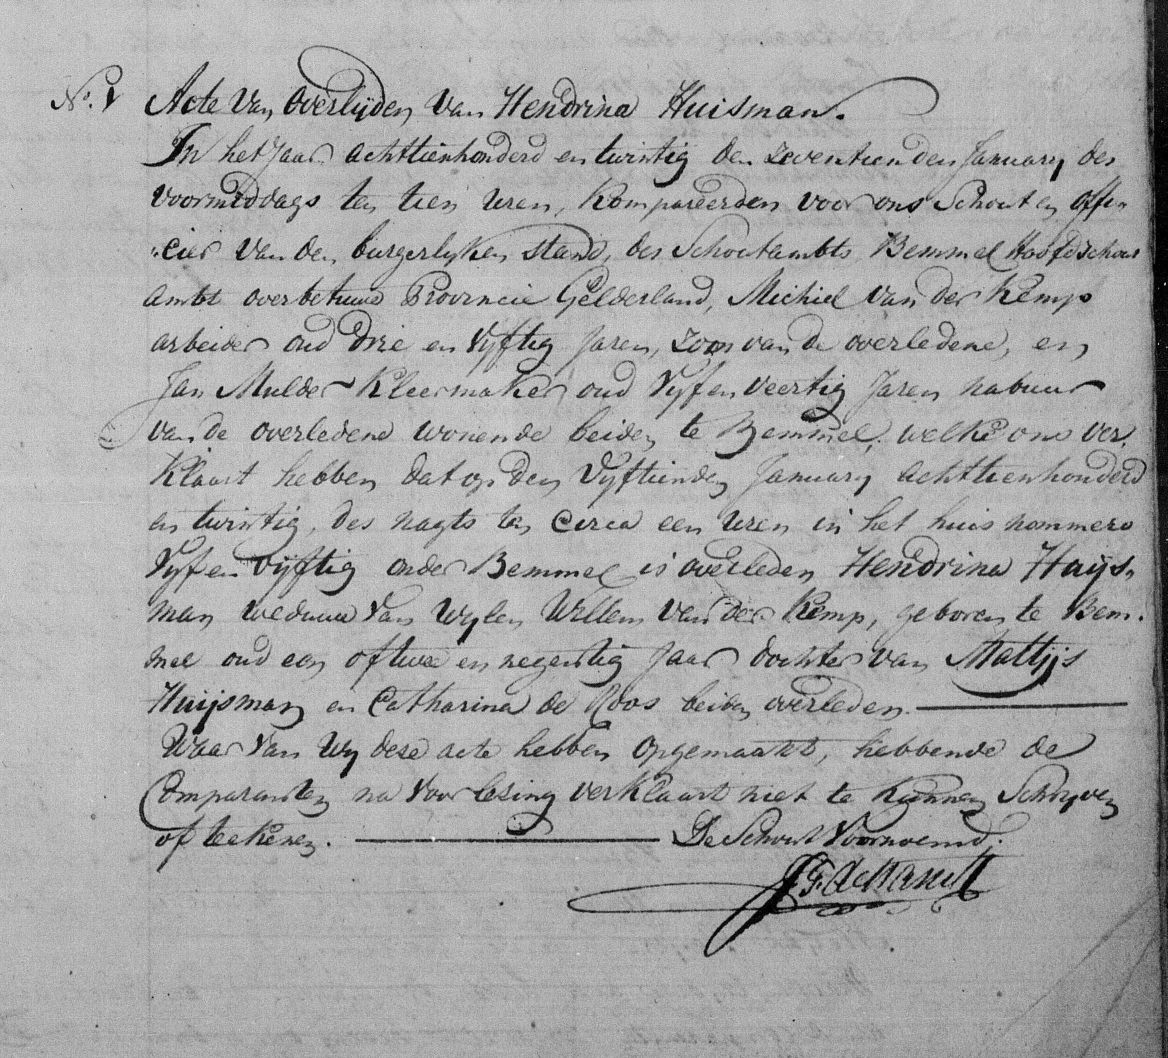 No. 1 Acte van overlijden van Hendrina Huisman.
In het Jaar achttienhonderd en twintig den zeventienden January des
voormiddags ten tien uren, kompareerden voor ons Schout en offi
cier van den burgerlyken stand, des Schoutambts Bemmel Hoofdschout
ambt overbetuwe Provincie Gelderland, Michiel van der Kemp
arbeider oud Drie en vyftig Jaren, zoon van de overledene, en
Jan Mulder Kleermaker oud vyf en veertig Jaren nabuur
van de overledene wonende beiden te Bemmel, welke ons ver
klaart hebben dat op den vyftienden January achttienhonderd
en twintig, des nagts ten circa een uren in het huis nommero
vyf en vijftig onder Bemmel is overleden Hendrina Huijs
man weduwe van wylen Willem van der Kemp, geboren te Bem-
mel oud een of twee en negentig Jaar dochter van Mattijs
Huijsman en Catharina de Roos beiden overleden.
Waar van Wy deze acte hebben opgemaakt, hebbende de
Comparanten na voorlezing verklaart niet te kunnen Schryven
of teekenen. De Schout voornoemd.